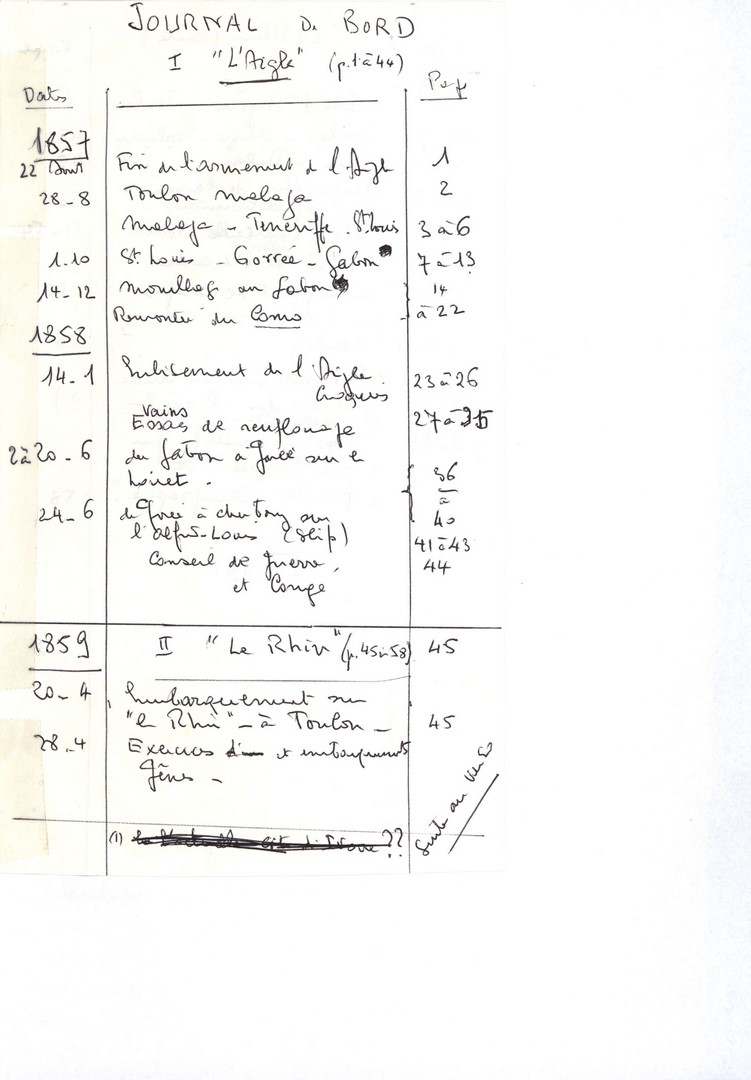 JOURNAL De BORD
I "L'Aigle" (p.1 à 44)
Dates Page
1857
22 Août Fin de l'armement de l'Aigle 1
28-8 Toulon Malaga 2
Malaga - Ténériffe - St Louis 3 à 6
1.10 St Louis - Gorrée - Gabon 7 à 13
14-12 Mouillage au Gabon 14
Remontée du Como à 22
1858
14.1 de l'Aigle 23 à 26
Croquis
Vains
Essais de renflouage 27 à 35
2 à 20-6 du Gabon à Gorée sur le
Loiret. 36
à
24-6 de Gorée à Cherbourg sur 40
l'Alfred-Louis (Slip) 41 à 43
Conseil de guerre, 44
et Congé
1859 II "Le Rhin" (p.45 à 58) 45
20-4 Embarquement sur
"le Rhin" - à Toulon - 45
28-4 Exercices et embarquements
Gênes -
Suite au verso
(1) ??